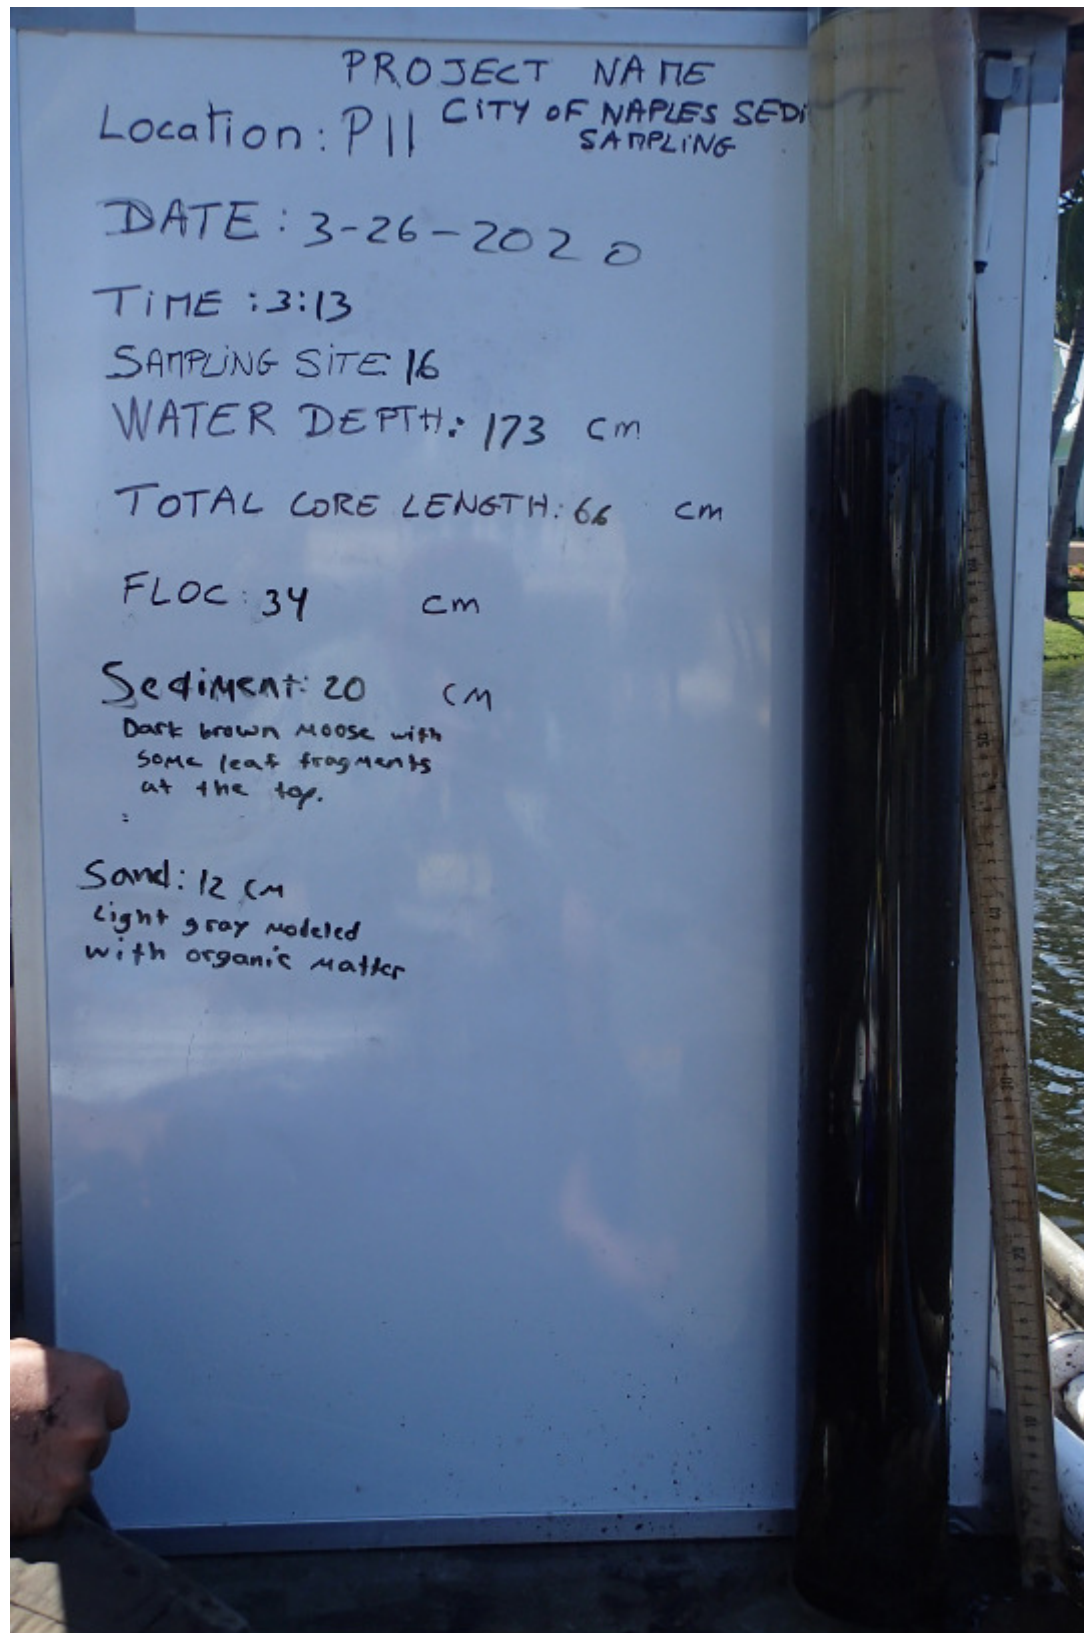 PROJECT NAME
Location: P11 CITY OF NAPLES SEDI
SAMPLING
DATE: 3-26-2020
TIME: 3:13
SAMPLING SITE 16
WATER DEPTH: 173 cm
TOTAL CORE LENGTH: 66 cm
FLOC: 34 cm
Sediment: 20 cm
Dark brown moose with
some leaf fragments
at the top.
Sand: 12 cm
Light gray modeled
with organic matter